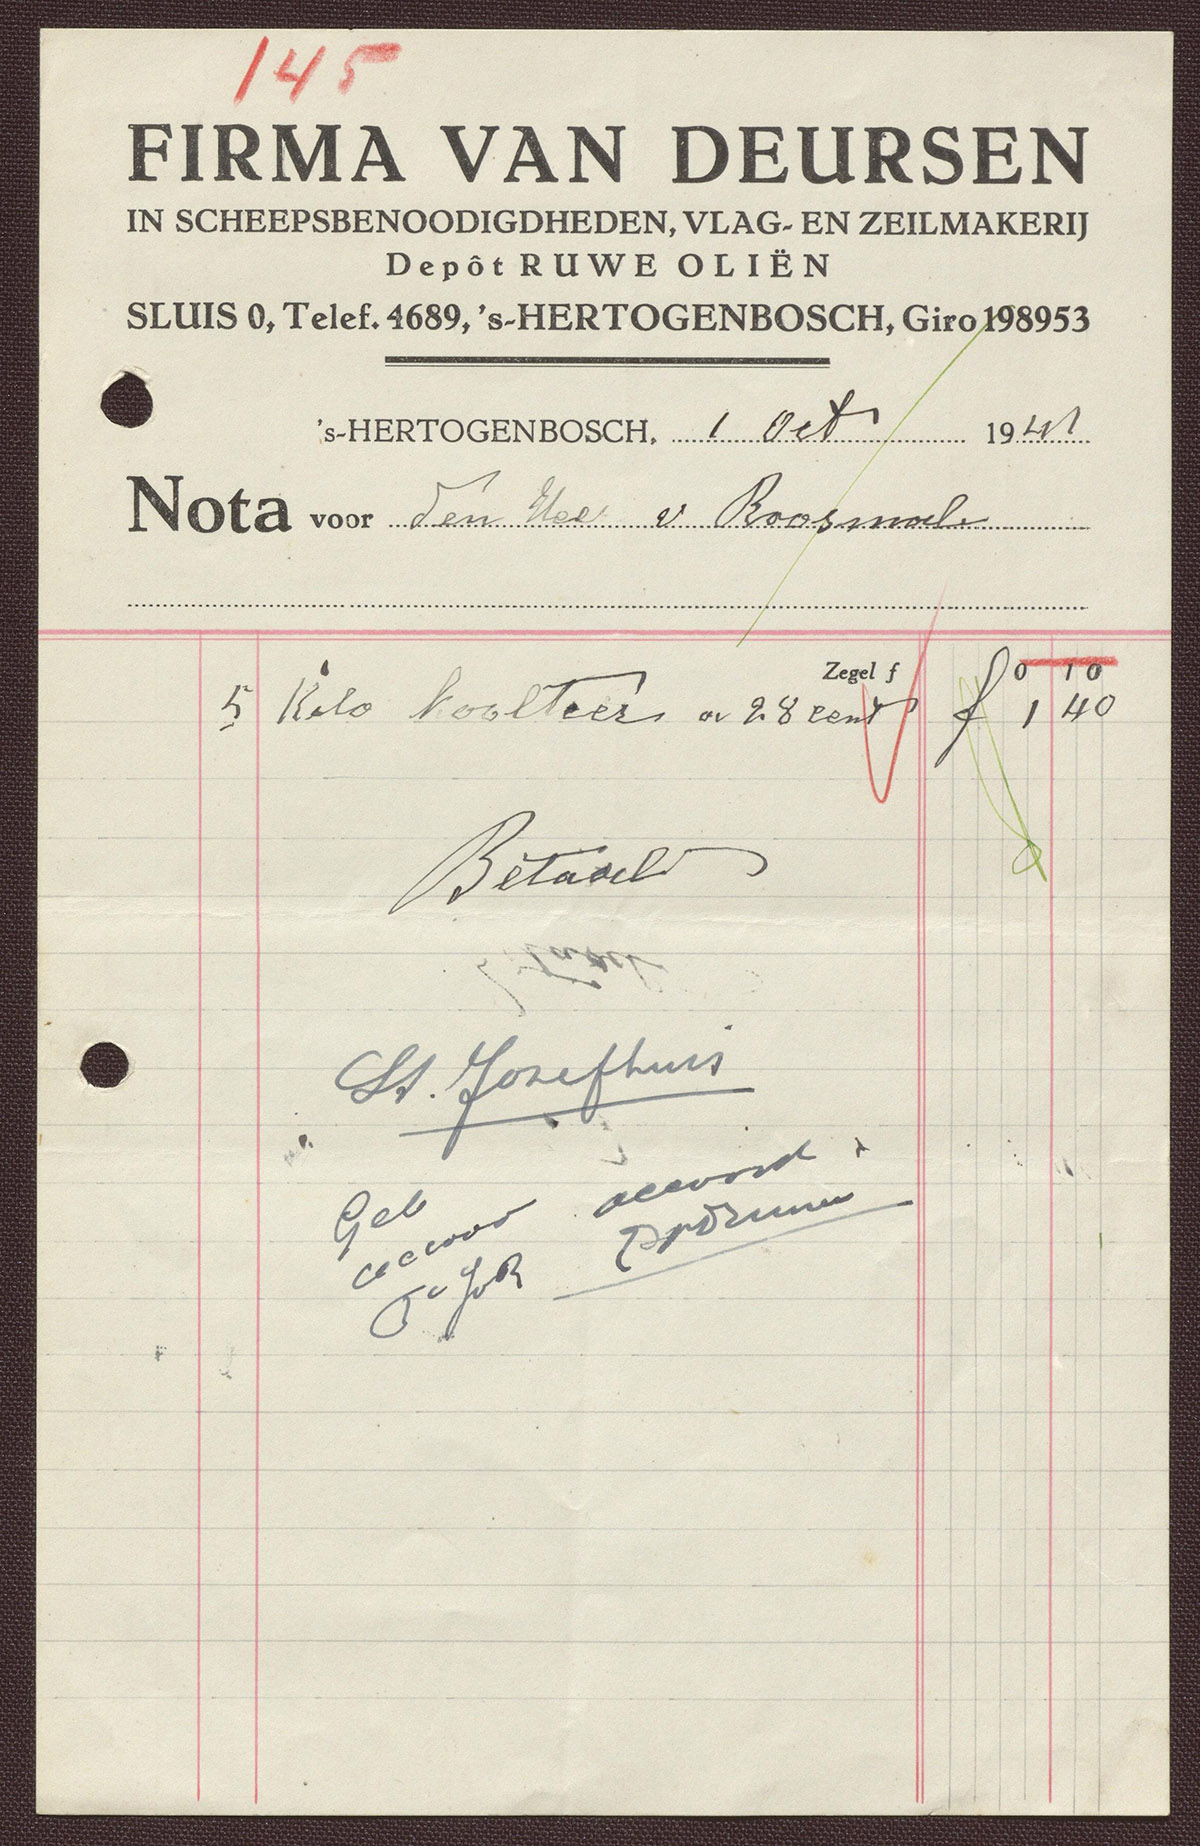 145
FIRMA VAN DEURSEN
IN SCHEEPSBENOODIGDHEDEN, VLAG- EN ZEILMAKERIJ
Depôt RUWE OLIËN
SLUIS 0, Telef. 4689, 's-HERTOGENBOSCH, Giro 198953
's-HERTOGENBOSCH, 1 Oct 1941
Nota voor den Heer v Roosmale
Zegel f 0 10
5 Kilo koolteer a 28 cent f 1 40
Betaald
St. Josefhuis
accoord